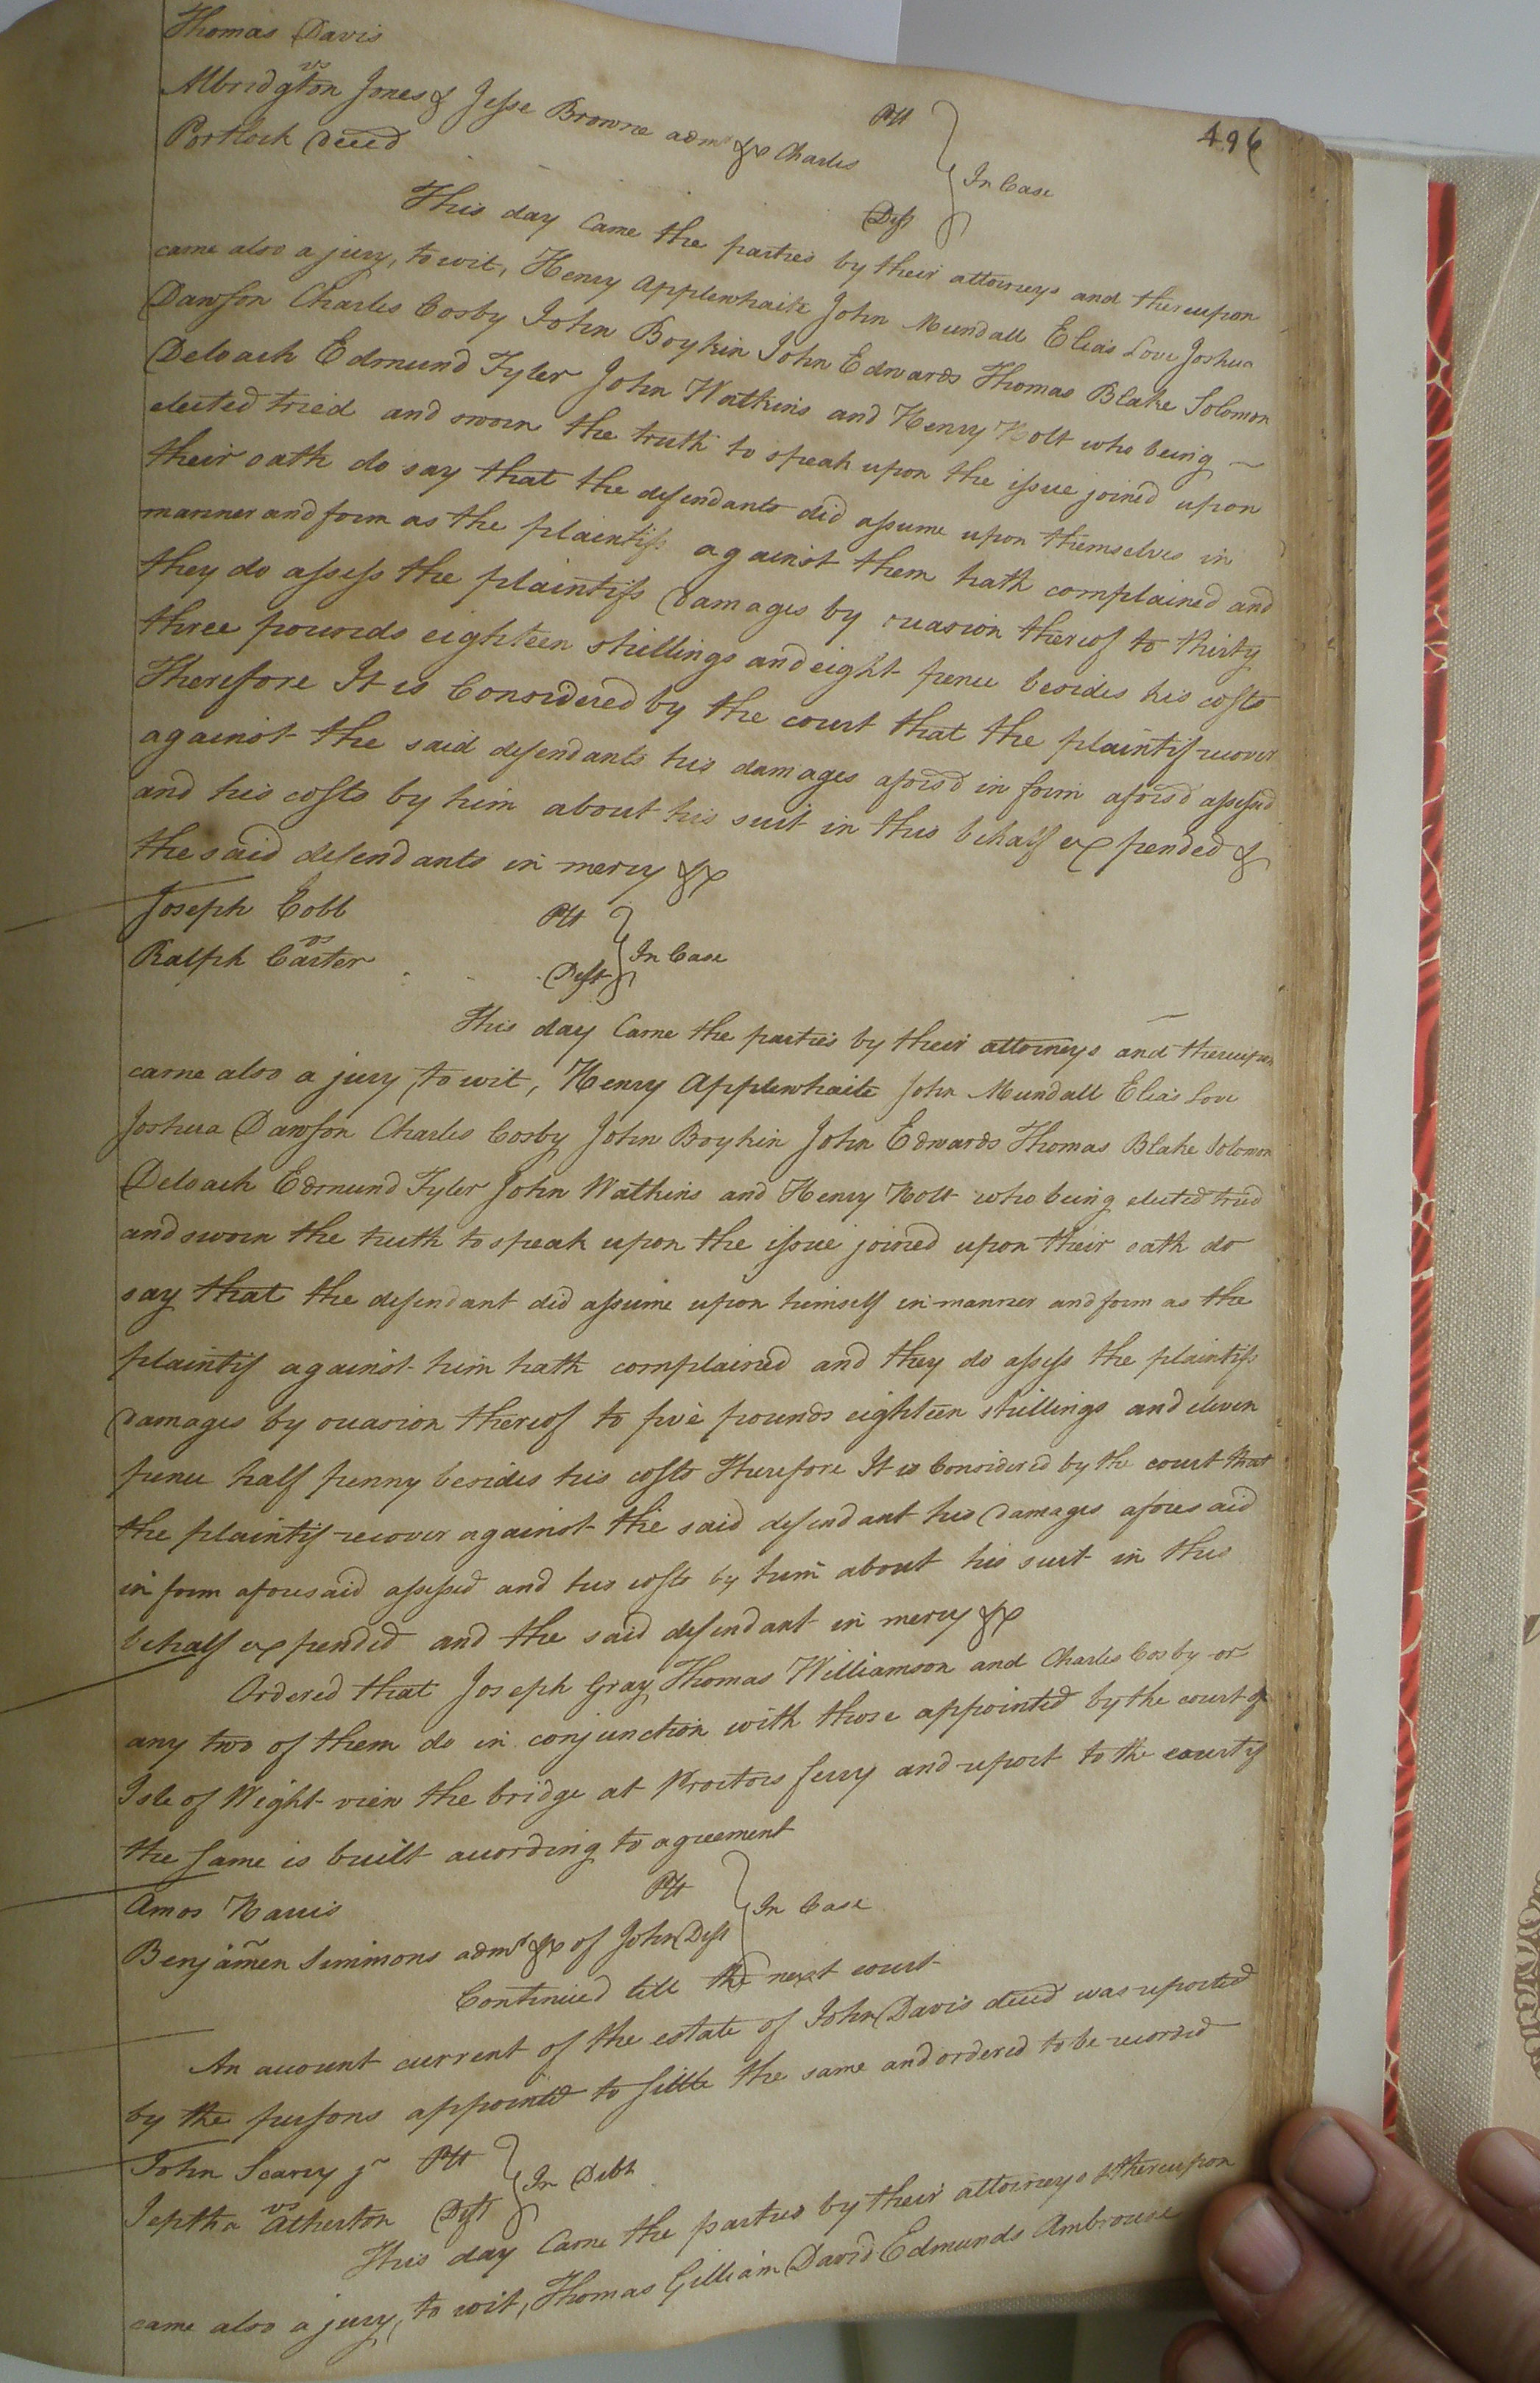 496
Thomas Davis Plt
vs
Albridgton Jones & Jesse Browne adm.r &c Charles } In Case
Portlock Deced Defts
This day Came the parties by their attorneys and thereupon
came also a jury, to wit, Henry Applewhaite John Mundall Elias Love Joshua
Dawson Charles Cosby John Boykin John Edwards Thomas Blake Solomon
Deloach Edmund Tyler John Watkins and Henry Holt who being
elected tried and sworn the truth to speak upon the issue joined upon
their oath do say that the defendants did assume upon themselves in
manner and form as the plaintiff against them hath complained and
they do assess the plaintiffs Damages by ocasion thereof to thirty
three pounds eighteen shillings and eight pence besides his costs
Therefore It is Considered by the court that the plaintif recover
against the said defendants his damages afores'd in form afores'd assessed
and his costs by him about his suit in this behalf expended &
the said defendants in mercy &c
Joseph Cobb Plt
vs } In Case
Ralph Carter Deft
This day Came the parties by their attorneys and thereupon
came also a jury, to wit, Henry Applewhaite John Mundall Elias Love
Joshua Dawson Charles Cosby John Boykin John Edwards Thomas Blake Solomon
Deloach Edmund Tyler John Watkins and Henry Holt who being elected tried
and sworn the truth to speak upon the issue joined upon their oath do
say that the defendant did assume upon himself in manner and form as the
plaintif against him hath complained and they do assess the plaintifs
Damages by ocasion thereof to five pounds eighteen shillings and eleven
pence half penny besides his costs Therefore It is Considered by the court that
the plaintif recover against the said defendant his Damages aforesaid
in form aforesaid assessed and his costs by him about his suit in this
behalf expended and the said defendant in mercy &c
Ordered that Joseph Gray Thomas Williamson and Charles Cosby or
any two of them do in conjunction with those appointed by the court of
Isle of Wight view the bridge at Proctors ferry and report to the court if
the same is built acording to agreement
Amos Harris Plt } In Case
Benjamen Simmons adm.r &c of John Deft
Continued till the next court
An account current of the estate of John Davis deced was reported
by the persons appointed to settle the same and ordered to be recorded
John Scarsy jr Plt
vs } In Debt
Jeptha Atherton Deft
This day Came the parties by their attorneys & thereupon
came also a jury, to wit, Thomas Gilliam David Edmunds Ambrouse